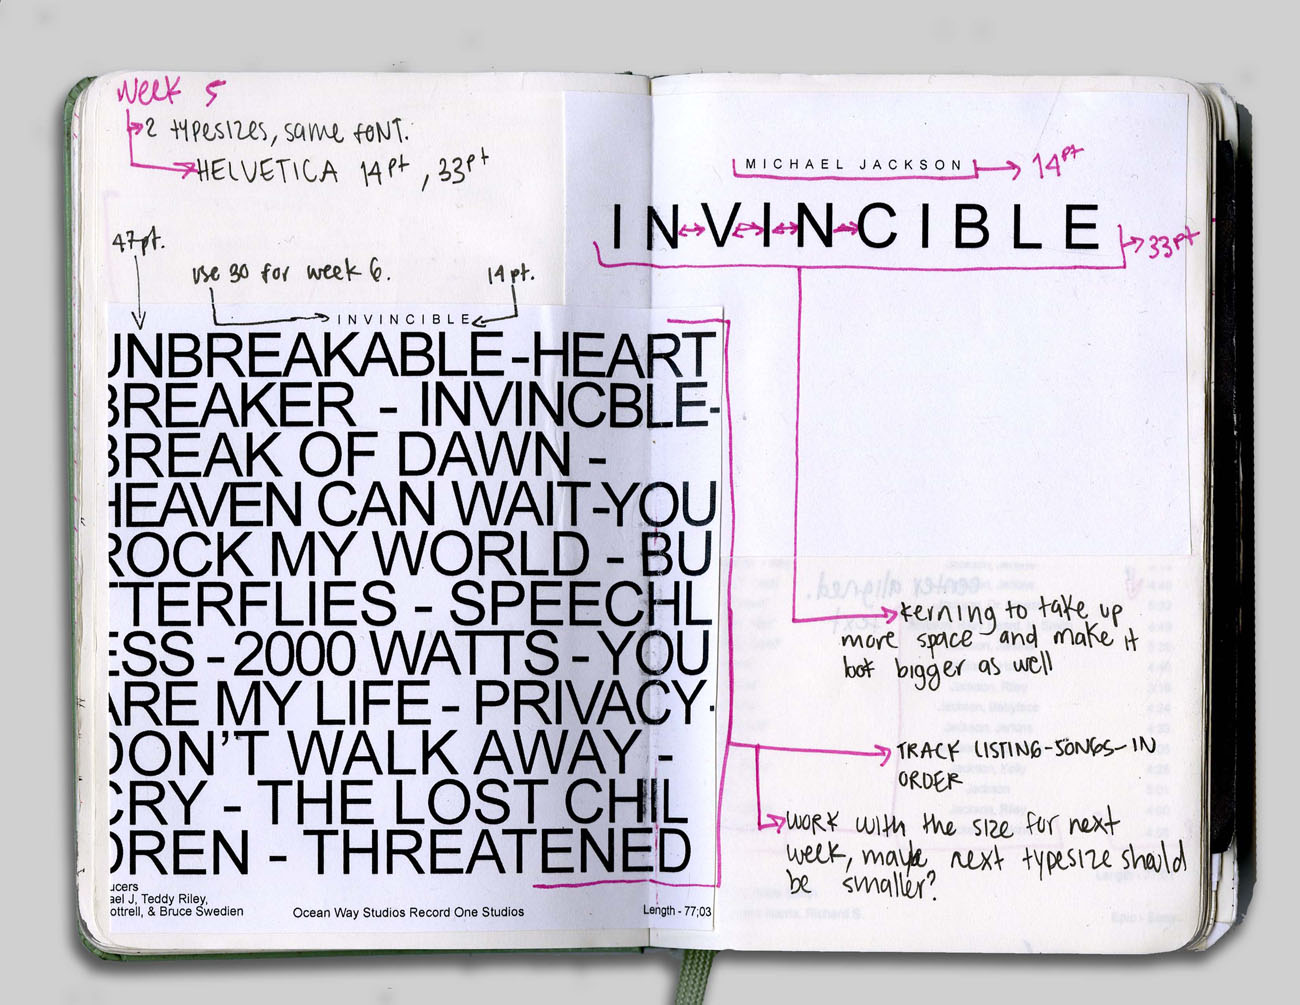 Week 5
2 typesizes, same font.
HELVETICA 14pt, 33pt
47pt.
use 30 for week 6.
14pt.
INVINCIBLE
UNBREAKABLE-HEART
BREAKER - INVINCBLE-
BREAK OF DAWN -
HEAVEN CAN WAIT-YOU
ROCK MY WORLD - BU
TTERFLIES - SPEECHL
ESS - 2000 WATTS - YOU
ARE MY LIFE - PRIVACY-
DON'T WALK AWAY -
CRY - THE LOST CHIL
DREN - THREATENED
ucers
ael J, Teddy Riley,
ottrell, & Bruce Swedien
Ocean Way Studios Record One Studios
Length - 77;03
MICHAEL JACKSON
14pt
INVINCIBLE
33pt
center aligned.
kerning to take up
more space and make it
bot bigger as well
TRACK LISTING-SONGS-IN
ORDER
WORK with the size for next
week, maybe next typesize should
be smaller?